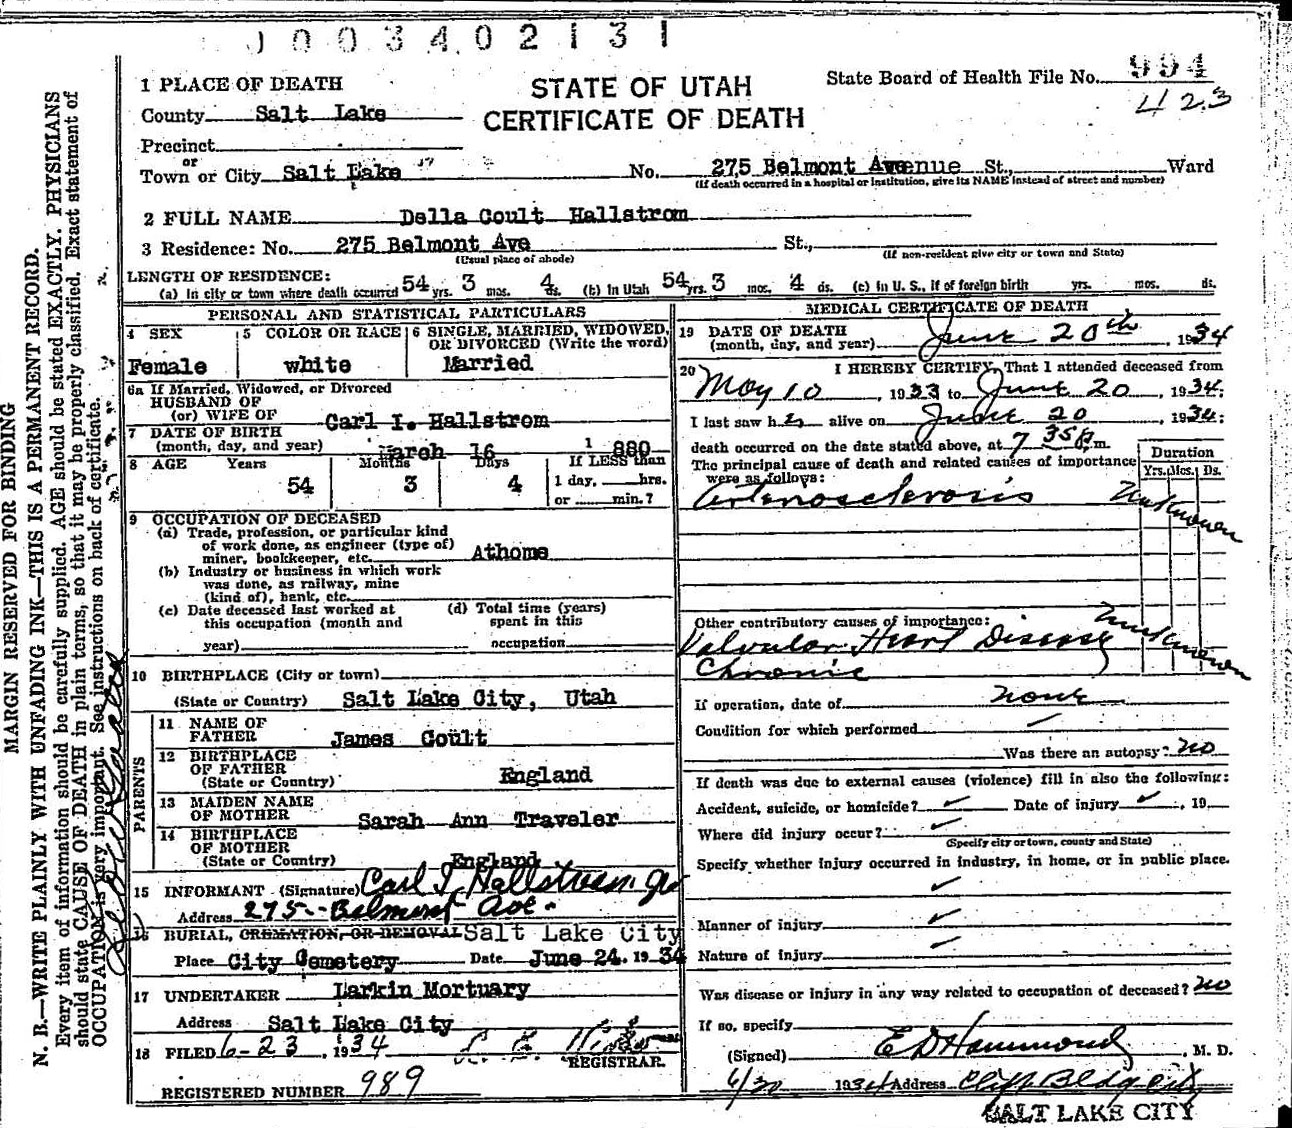 0003402131
1 PLACE OF DEATH
STATE OF UTAH
CERTIFICATE OF DEATH
State Board of Health File No. 994
423
County Salt Lake
Precinct
or
Town or City Salt Lake No. 275 Belmont Avenue St., Ward
(If death occurred in a hospital or institution, give its NAME instead of street and number)
2 FULL NAME Della Coult Hallstrom
3 Residence: No. 275 Belmont Ave St.,
(Usual place of abode) (If non-resident give city or town and State)
LENGTH OF RESIDENCE:
(a) In city or town where death occurred 54 yrs. 3 mos. 4 ds. (b) In Utah 54 yrs. 3 mos. 4 ds. (c) In U. S., if of foreign birth yrs. mos. ds.
PERSONAL AND STATISTICAL PARTICULARS
4 SEX
Female
5 COLOR OR RACE
white
6 SINGLE, MARRIED, WIDOWED,
OR DIVORCED (Write the word)
Married
6a If Married, Widowed, or Divorced
HUSBAND OF
(or) WIFE OF Carl I. Hallstrom
7 DATE OF BIRTH
(month, day, and year) March 16 1880
8 AGE Years Months Days If LESS than
54 3 4 1 day, hrs.
or min.?
9 OCCUPATION OF DECEASED
(a) Trade, profession, or particular kind
of work done, as engineer (type of)
miner, bookkeeper, etc. Athome
(b) Industry or business in which work
was done, as railway, mine
(kind of), bank, etc.
(c) Date deceased last worked at
this occupation (month and
year)
(d) Total time (years)
spent in this
occupation
10 BIRTHPLACE (City or town)
(State or Country) Salt Lake City, Utah
PARENTS
11 NAME OF
FATHER James Coult
12 BIRTHPLACE
OF FATHER
(State or Country) England
13 MAIDEN NAME
OF MOTHER Sarah Ann Traveler
14 BIRTHPLACE
OF MOTHER
(State or Country) England
15 INFORMANT (Signature) Carl I Hallstrom Jr
Address 275 - Belmont Ave.
16 BURIAL, CREMATION, OR REMOVAL Salt Lake City
Place City Cemetery Date June 24. 1934
17 UNDERTAKER Larkin Mortuary
Address Salt Lake City
18 FILED 6-23, 1934
REGISTRAR.
REGISTERED NUMBER 989
MEDICAL CERTIFICATE OF DEATH
19 DATE OF DEATH
(month, day, and year) June 20th, 1934
20 I HEREBY CERTIFY, That I attended deceased from
May 10, 1933 to June 20, 1934;
I last saw her alive on June 20, 1934;
death occurred on the date stated above, at 7 35 p.m.
The principal cause of death and related causes of importance
were as follows:
Duration
Yrs. Mos. Ds.
Arteriosclerosis Unknown
Other contributory causes of importance:
Valvular Heart Disease Unknown
Chronic
If operation, date of none
Condition for which performed ✓
Was there an autopsy? no
If death was due to external causes (violence) fill in also the following:
Accident, suicide, or homicide? ✓ Date of injury ✓, 19
Where did injury occur? ✓
(Specify city or town, county and State)
Specify whether injury occurred in industry, in home, or in public place.
✓
Manner of injury ✓
Nature of injury ✓
Was disease or injury in any way related to occupation of deceased? no
If so, specify
(Signed) E D Hammond, M. D.
6/20 1934 Address Clift Bldg City
SALT LAKE CITY
MARGIN RESERVED FOR BINDING
N. B.—WRITE PLAINLY WITH UNFADING INK—THIS IS A PERMANENT RECORD.
Every item of information should be carefully supplied. AGE should be stated EXACTLY. PHYSICIANS
should state CAUSE OF DEATH in plain terms, so that it may be properly classified. Exact statement of
OCCUPATION is very important. See instructions on back of certificate.